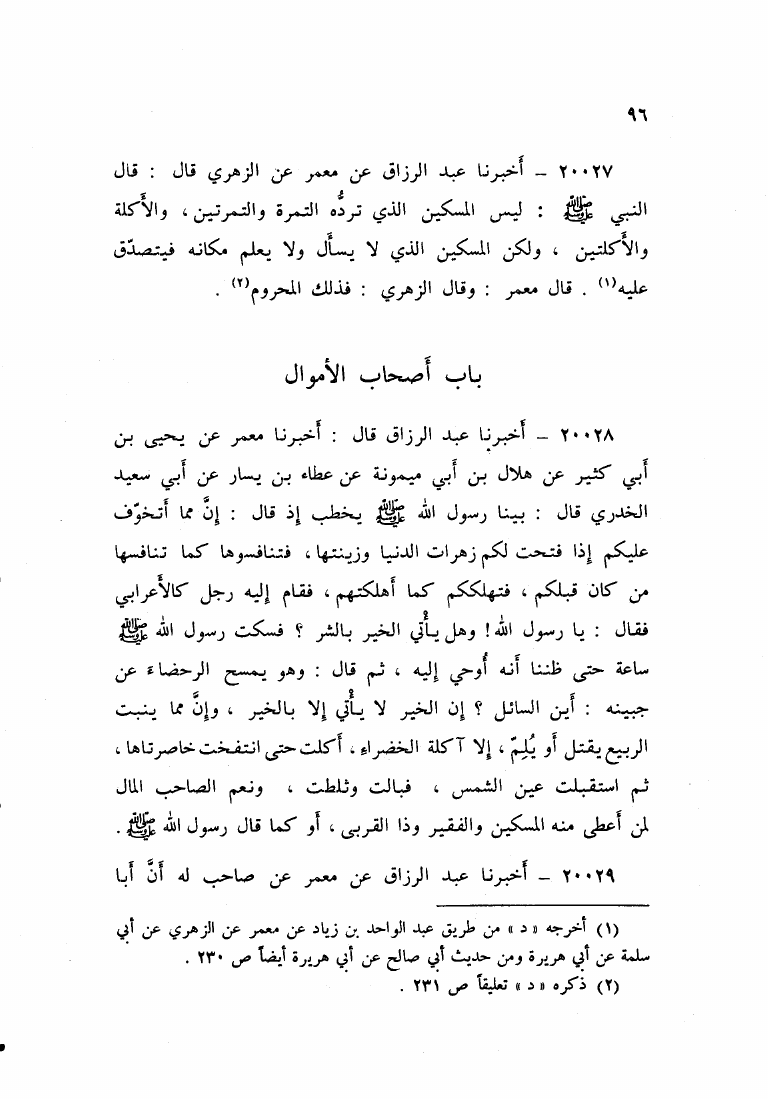 ٩٦
٢٠٠٢٧ – أخبرنا عبد الرزاق عن معمر عن الزهري قال : قال
النبي ﷺ : ليس المسكين الذي تردُّه التمرة والتمرتين ، والأكلة
والأكلتين ، ولكن المسكين الذي لا يسأل ولا يعلم مكانه فيتصدّق
عليه(١) . قال معمر : وقال الزهري : فذلك المحروم(٢) .
باب أصحاب الأموال
٢٠٠٢٨ – أخبرنا عبد الرزاق قال : أخبرنا معمر عن يحيى بن
أبي كثير عن هلال بن أبي ميمونة عن عطاء بن يسار عن أبي سعيد
الخدري قال : بينا رسول الله ﷺ يخطب إذ قال : إنَّ مما أتخوّف
عليكم إذا فتحت لكم زهرات الدنيا وزينتها ، فتنافسوها كما تنافسها
من كان قبلكم ، فتهلككم كما أهلكتهم ، فقام إليه رجل كالأعرابي
فقال : يا رسول الله ! وهل يأتي الخير بالشر ؟ فسكت رسول الله ﷺ
ساعة حتى ظننا أنه أوحي إليه ، ثم قال : وهو يمسح الرحضاء عن
جبينه : أين السائل ؟ إن الخير لا يأتي إلا بالخير ، وإنَّ مما ينبت
الربيع يقتل أو يُلِمّ ، إلا آكلة الخضراء ، أكلت حتى انتفخت خاصرتاها ،
ثم استقبلت عين الشمس ، فبالت وثلطت ، ونعم الصاحب المال
لمن أعطى منه المسكين والفقير وذا القربى ، أو كما قال رسول الله ﷺ .
٢٠٠٢٩ – أخبرنا عبد الرزاق عن معمر عن صاحب له أنَّ أبا
(١) أخرجه « د » من طريق عبد الواحد بن زياد عن معمر عن الزهري عن أبي
سلمة عن أبي هريرة ومن حديث أبي صالح عن أبي هريرة أيضاً ص ٢٣٠ .
(٢) ذكره « د » تعليقاً ص ٢٣١ .